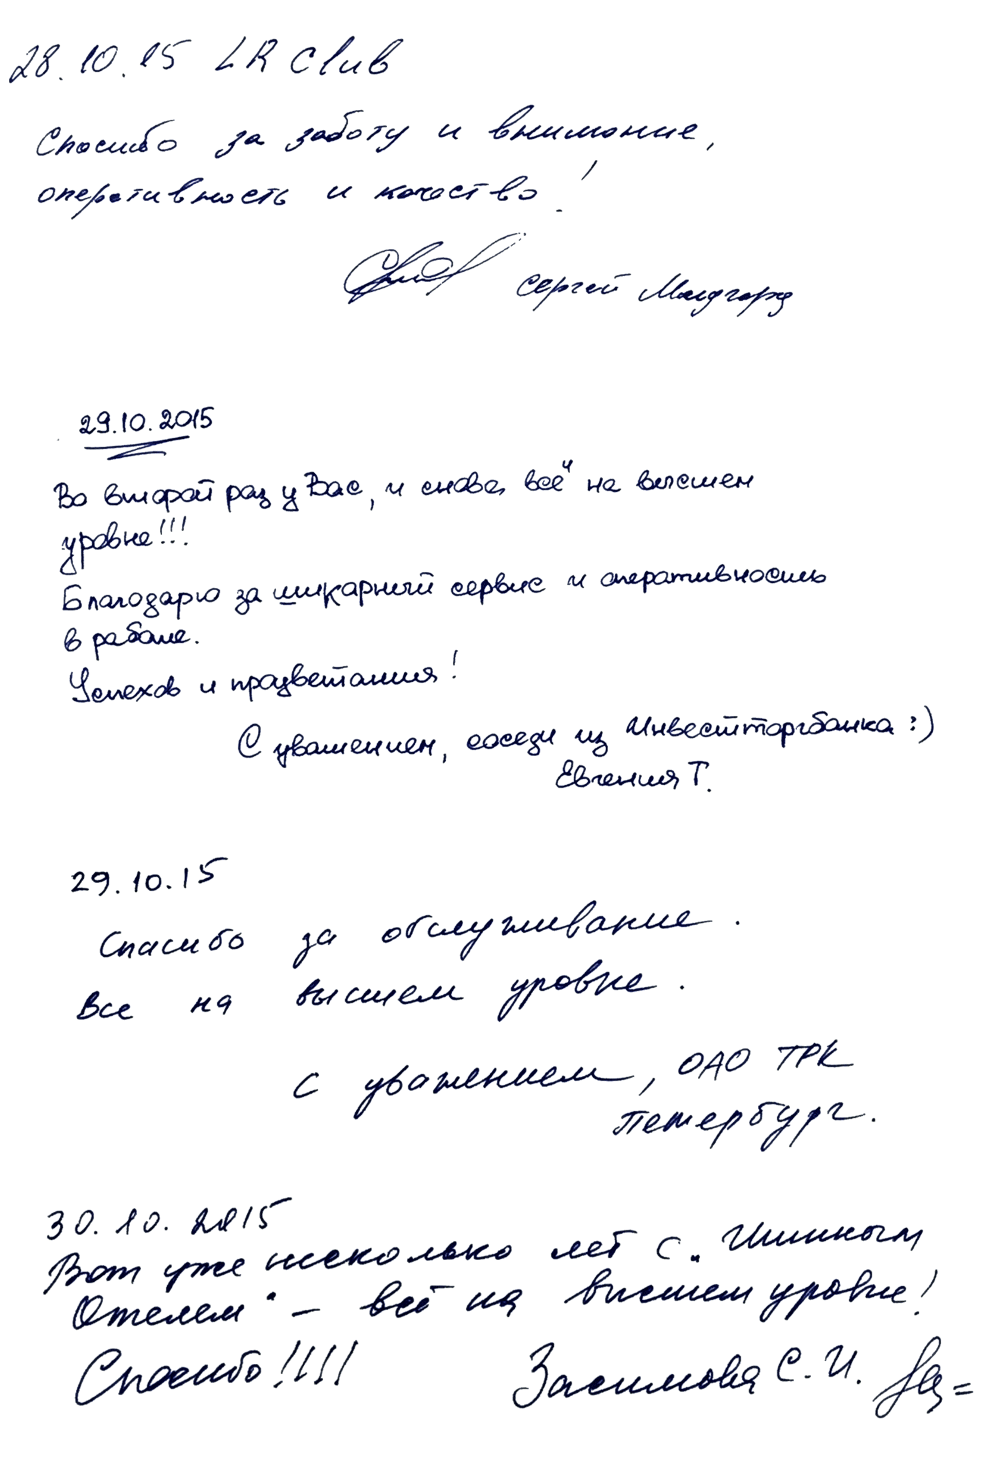 28.10.15 LR Club
Спасибо за заботу и внимание,
оперативность и качество!
Сергей
29.10.2015
Во второй раз у Вас, и снова всё на высшем
уровне!!!
Благодарю за шикарный сервис и оперативность
в работе.
Успехов и процветания!
С уважением, соседи из Инвестторгбанка :)
Евгения Т.
29.10.15
Спасибо за обслуживание.
Все на высшем уровне.
С уважением, ОАО ТРК
Петербург.
30.10.2015
Вот уже несколько лет с „Шинным
Отелем“ – всё на высшем уровне!
Спасибо!!!! Засимова С. И.